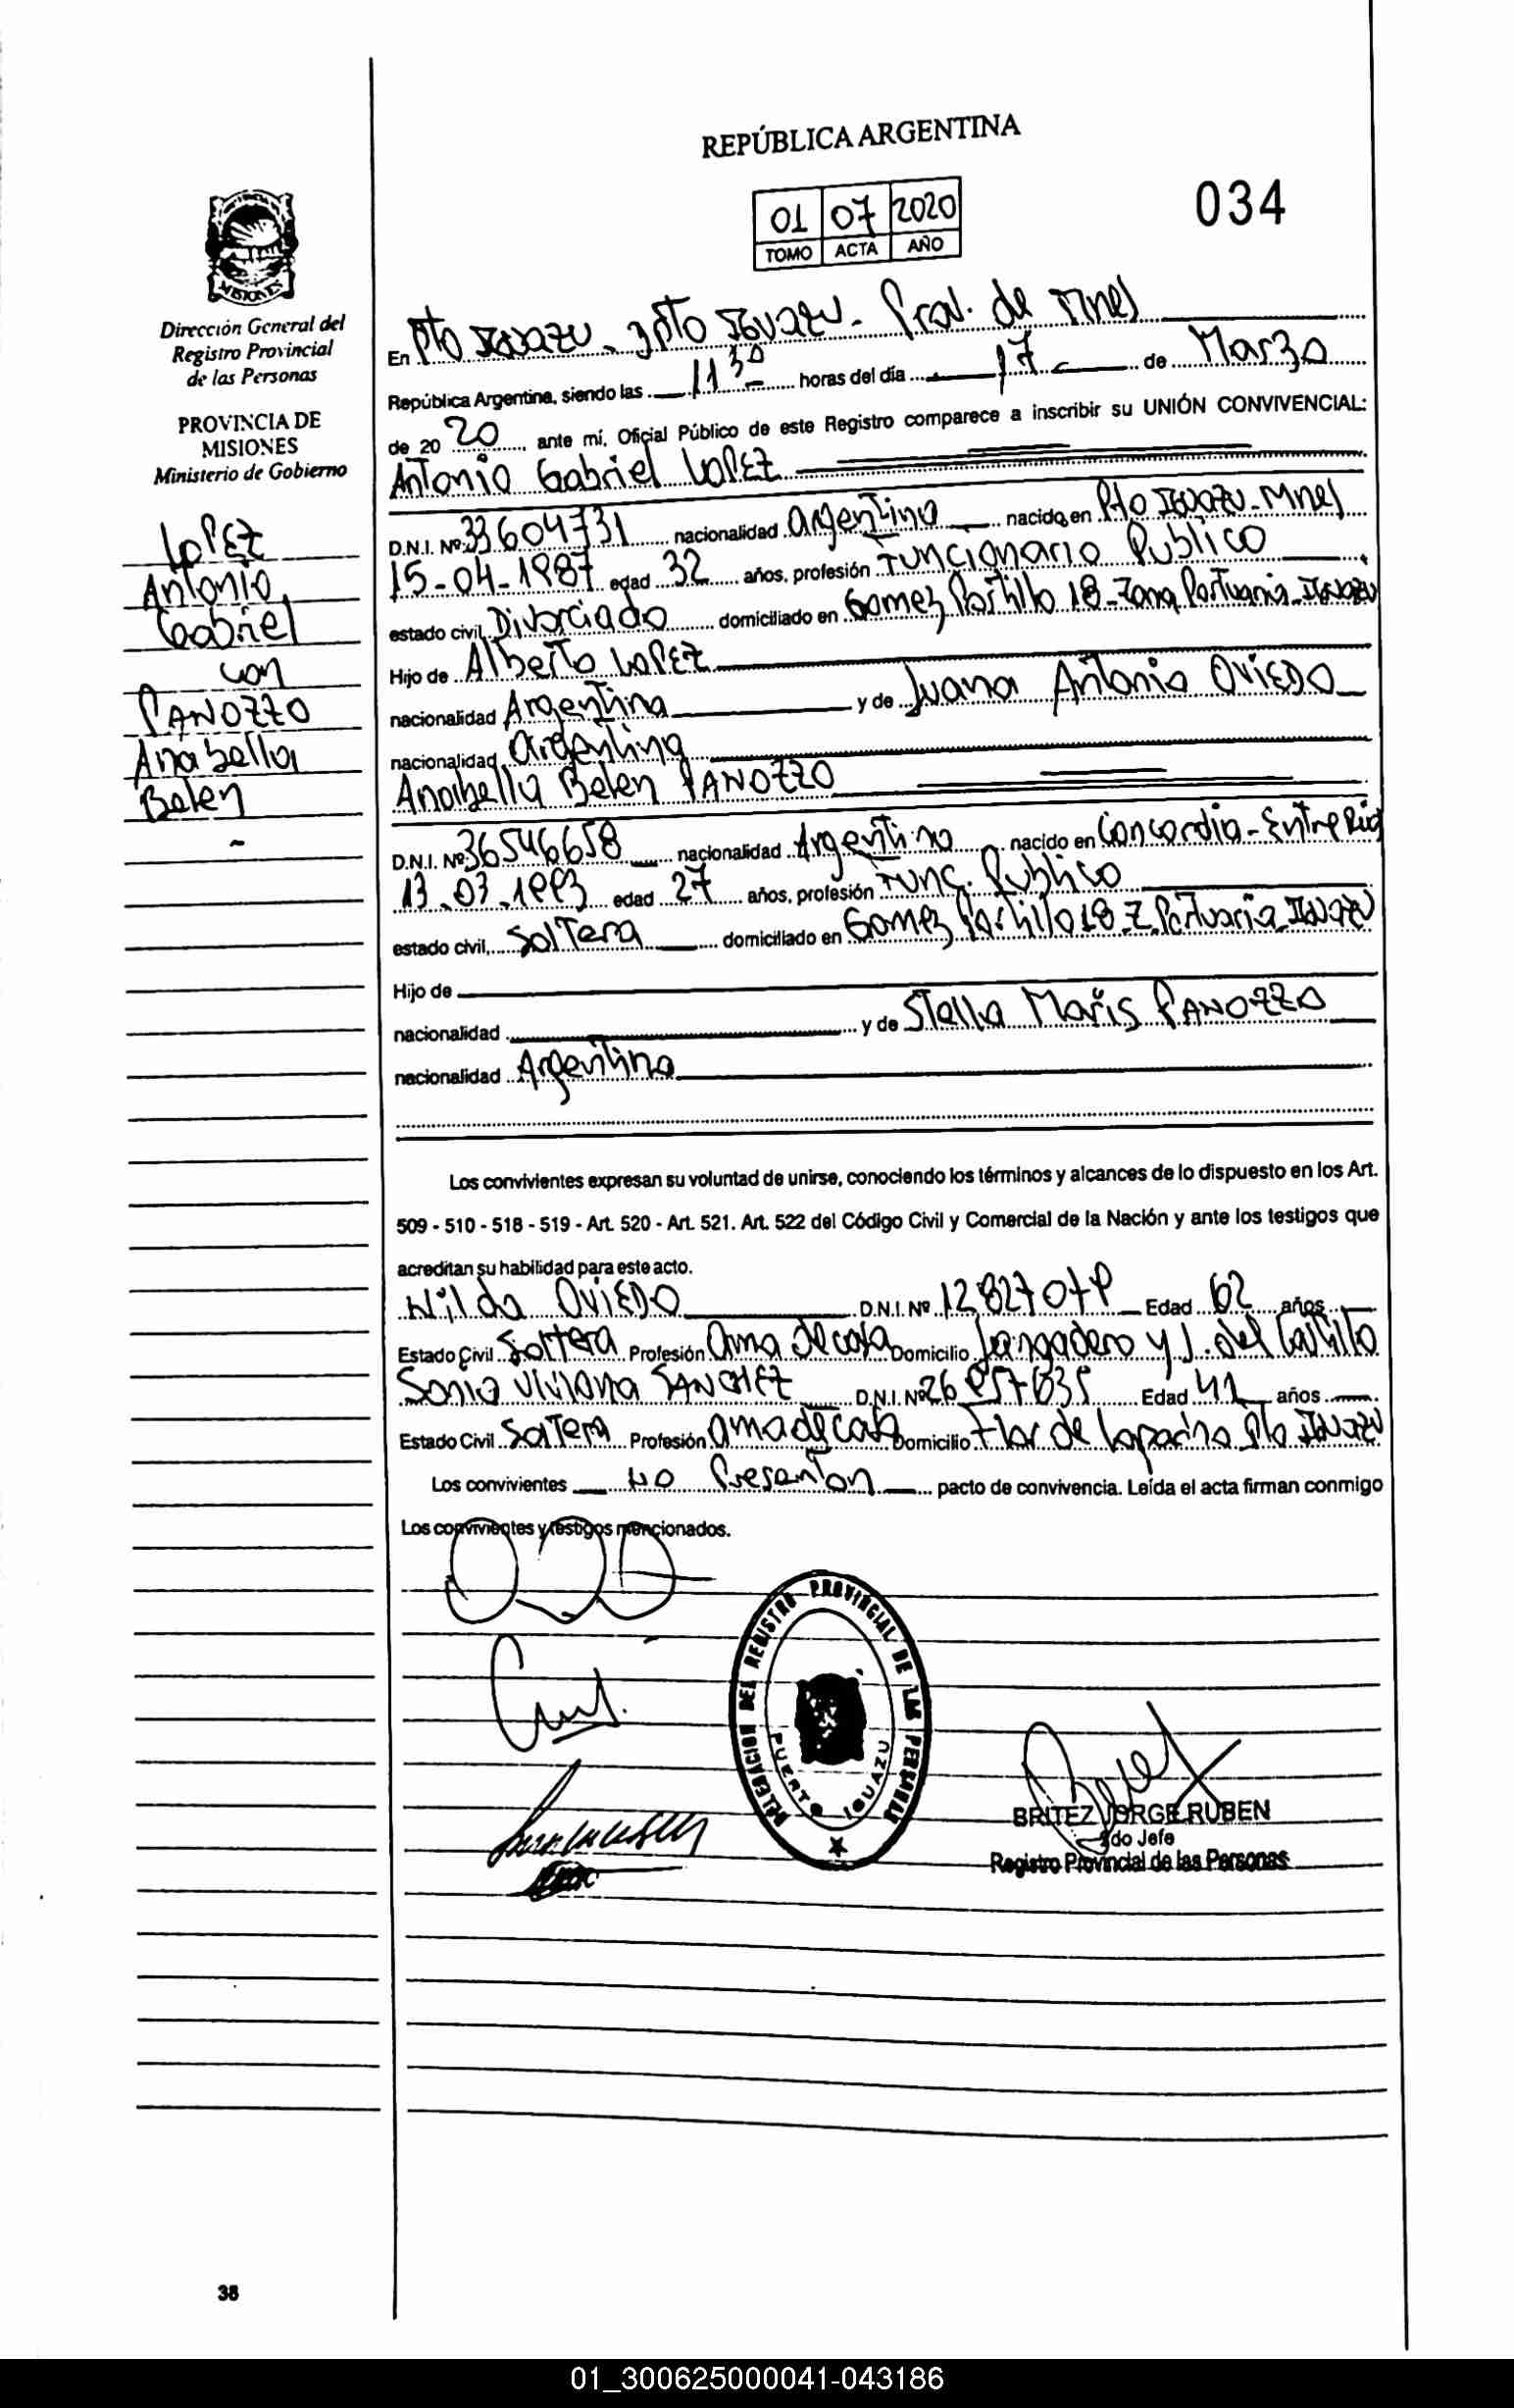 REPÚBLICA ARGENTINA
034
01 07 2020
TOMO ACTA AÑO
MISIONES
Dirección General del
Registro Provincial
de las Personas
PROVINCIA DE
MISIONES
Ministerio de Gobierno
LOPEZ
Antonio
Gabriel
con
PANOZZO
Anabella
Belen
En Pto Iguazu - Dpto Iguazu - Prov. de Mnes
República Argentina, siendo las 11 30 horas del día 17 de Marzo
de 20 20 ante mí, Oficial Público de este Registro comparece a inscribir su UNIÓN CONVIVENCIAL:
Antonio Gabriel LOPEZ
D.N.I. Nº 33604731 nacionalidad Argentina nacido en Pto Iguazu - Mnes
15-04-1987 edad 32 años, profesión Funcionario Publico
estado civil Divorciado domiciliado en Gomez Portillo 18 - Zona Portuaria - Iguazu
Hijo de Alberto LOPEZ
nacionalidad Argentina y de Juana Antonia OVIEDO
nacionalidad Argentina
Anabella Belen PANOZZO
D.N.I. Nº 36546658 nacionalidad Argentina nacido en Concordia - Entre Rios
13-03-1993 edad 27 años, profesión Func. Publico
estado civil, Soltera domiciliado en Gomez Portillo 18 - Z. Portuaria Iguazu
Hijo de
nacionalidad y de Stella Maris PANOZZO
nacionalidad Argentina
Los convivientes expresan su voluntad de unirse, conociendo los términos y alcances de lo dispuesto en los Art.
509 - 510 - 518 - 519 - Art. 520 - Art. 521. Art. 522 del Código Civil y Comercial de la Nación y ante los testigos que
acreditan su habilidad para este acto.
Nilda OVIEDO D.N.I. Nº Edad 62 años
Estado Civil Soltera Profesión Ama de casa Domicilio Jangadero y J. del Castillo
Sonia Viviana SANCHEZ D.N.I. Nº Edad 41 años
Estado Civil Soltera Profesión Ama de casa Domicilio Flor de Lapacho Pto Iguazu
Los convivientes NO Presentan pacto de convivencia. Leída el acta firman conmigo
Los convivientes y testigos mencionados.
DELEGACION DEL REGISTRO PROVINCIAL DE LAS PERSONAS
PUERTO IGUAZU
BRITEZ JORGE RUBEN
2do Jefe
Registro Provincial de las Personas
38
01_300625000041-043186